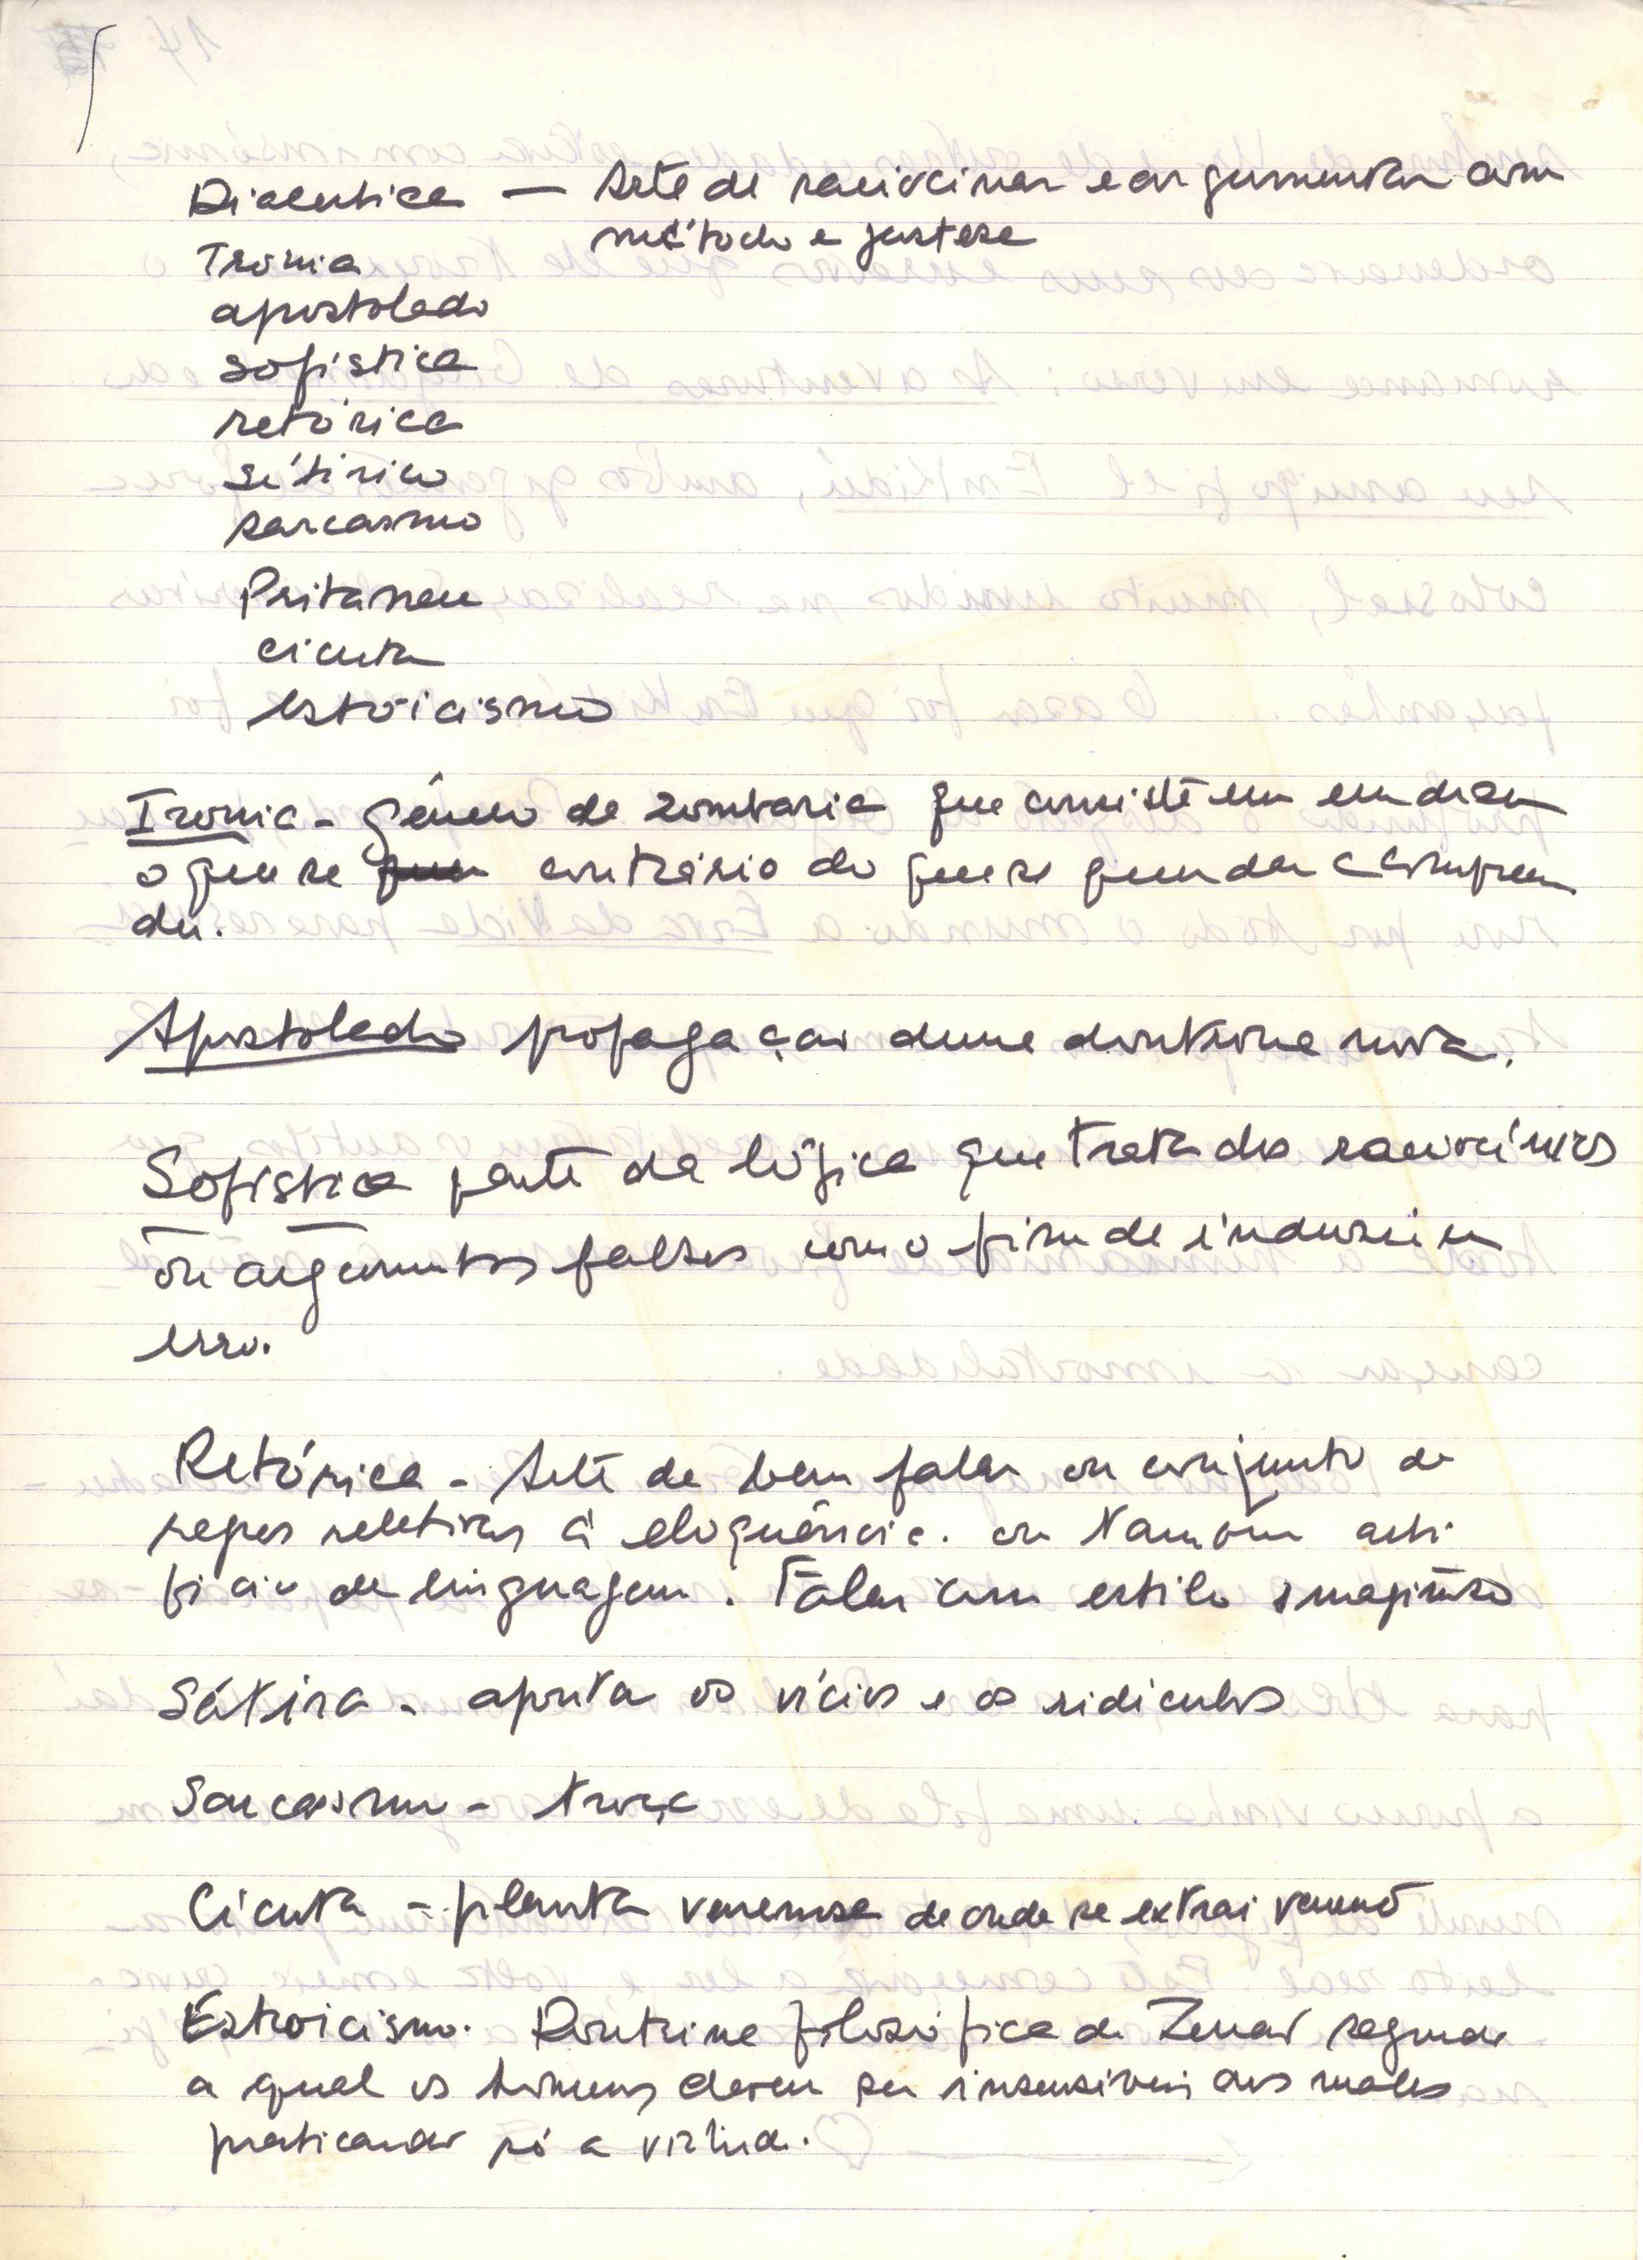 Dialectica — Arte de raciocinar e argumentar com
método e justeza
Ironia
apostolado
sofistica
retórica
sátirico
sarcasmo
Pritaneu
cicuta
estoicismo
Ironia - género de zombaria que consiste em em dizer
o que se contrário do que se quer dar a compreen
der.
Apostolado propagação duma doutrina nova.
Sofistica parte da lógica que trata dos raciocínios
ou argumentos falsos com o fim de induzir em
erro.
Retórica - Arte de bem falar ou conjunto de
regras relativas à eloquência. ou também arti
ficio de linguagem. Falar com estilo
Sátira - aponta os vícios e os ridiculos
Sarcasmo - troça
Cicuta - planta venenosa de onde se extrai veneno
Estoicismo. Doutrina filosófica de Zenão segundo
a qual os homens devem ser insensiveis aos males
praticando só a virtude.